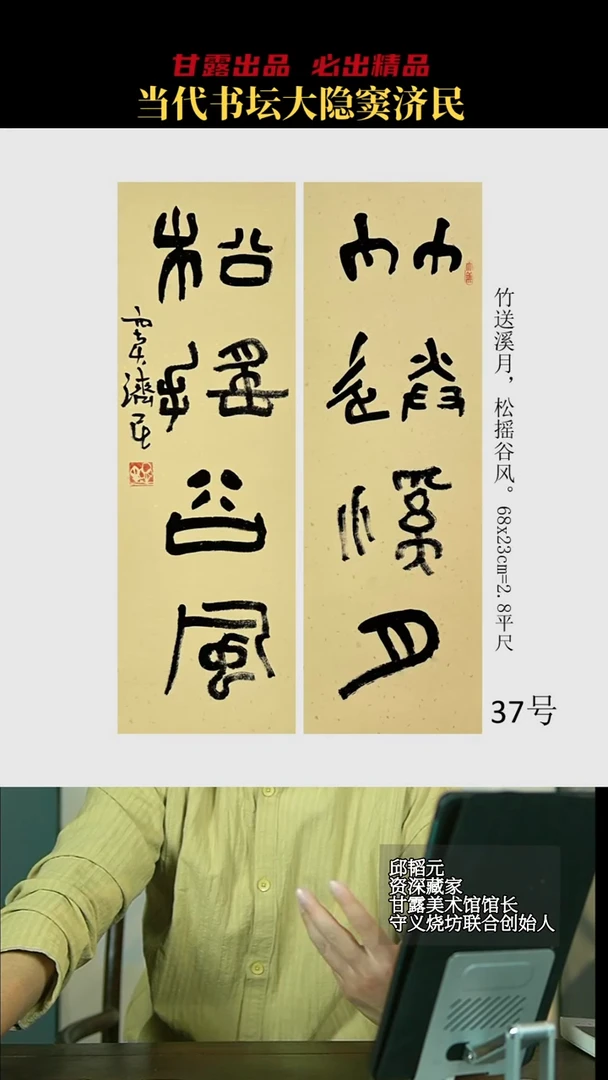 甘露出品 必出精品
当代书坛大隐窦济民
竹送溪月
松摇谷风
窦济民
竹送溪月，松摇谷风。68x23cm=2.8平尺
37号
邱韬元
资深藏家
甘露美术馆馆长
守义烧坊联合创始人